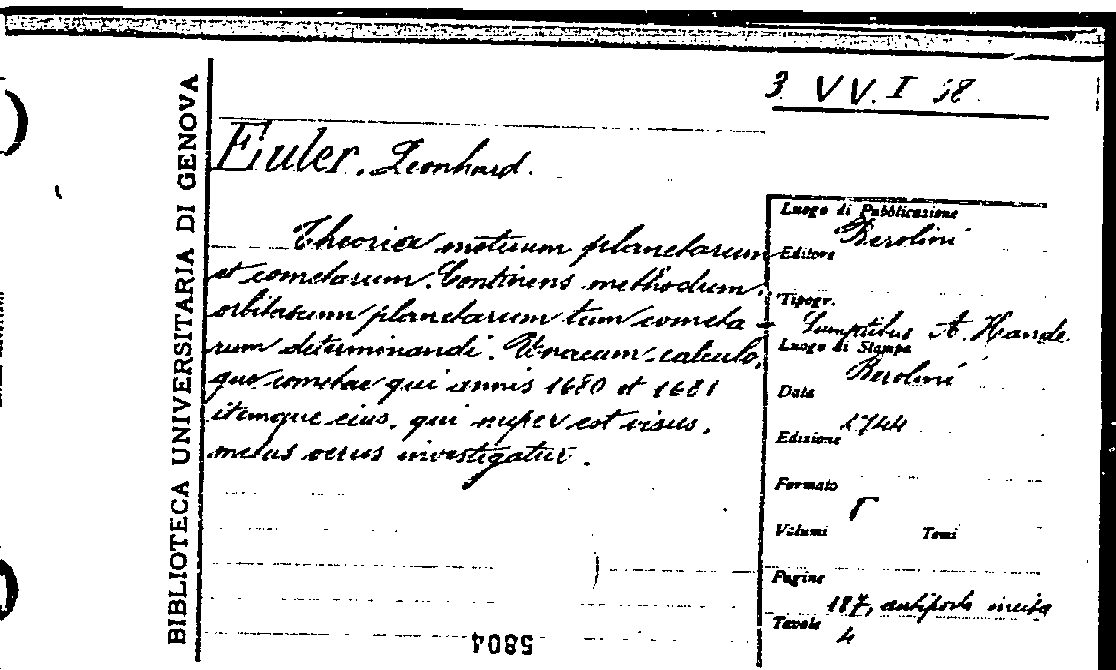 3 VV. I 38.
BIBLIOTECA UNIVERSITARIA DI GENOVA
Euler, Leonhard.
Theoria motuum planetarum
et cometarum. Continens methodum
orbitarum planetarum tum cometa-
rum determinandi. Una cum calculo,
quo cometae qui annis 1680 et 1681
itemque eius, qui nuper est visus,
motus verus investigatur.
Luogo di Pubblicazione
Berolini
Editore
Tipogr.
Sumptibus A. Haude
Luogo di Stampa
Berolini
Data
1744
Edizione
Formato
Volumi Tomi
Pagine
187, antiporta incisa
Tavole
4
5804